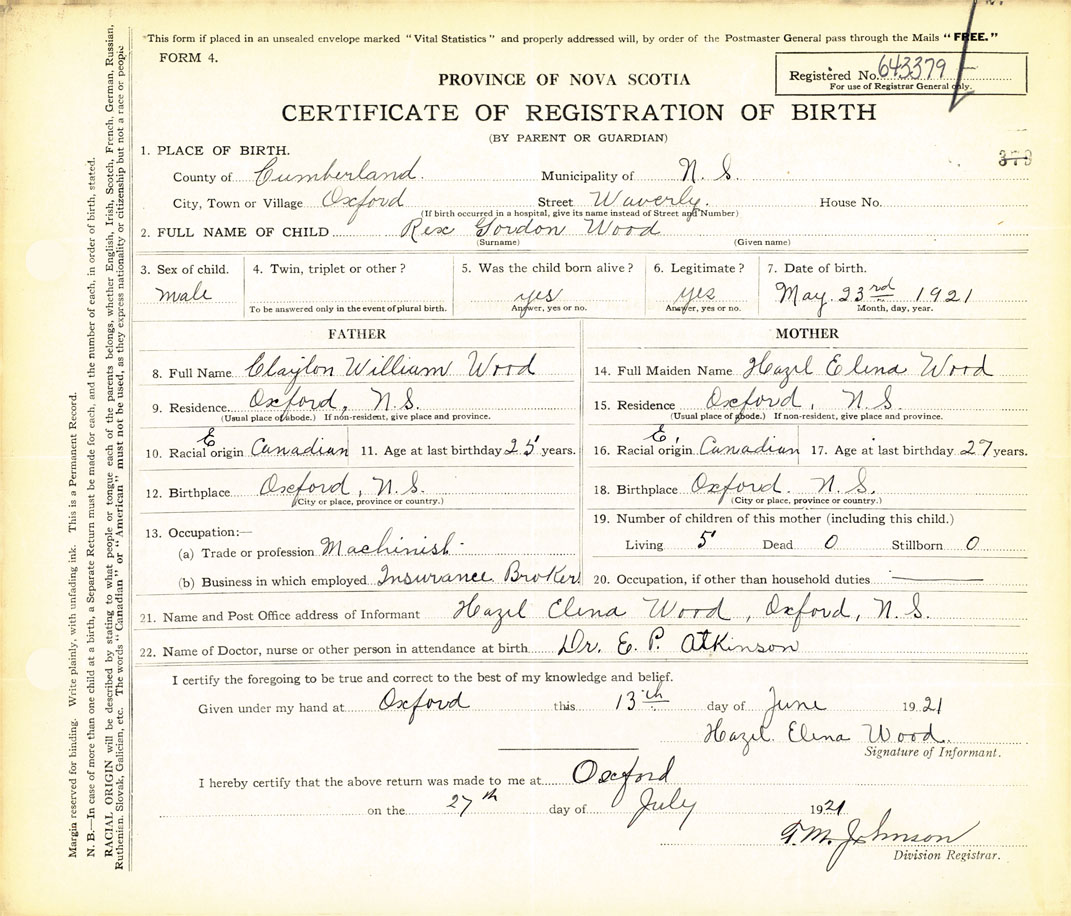 "This form if placed in an unsealed envelope marked "Vital Statistics" and properly addressed will, by order of the Postmaster General pass through the Mails "FREE."
FORM 4.
Registered No. 643379
For use of Registrar General only.
PROVINCE OF NOVA SCOTIA
CERTIFICATE OF REGISTRATION OF BIRTH
(BY PARENT OR GUARDIAN)
373
1. PLACE OF BIRTH.
County of Cumberland. Municipality of N. S.
City, Town or Village Oxford Street Waverly. House No.
(If birth occurred in a hospital, give its name instead of Street and Number)
2. FULL NAME OF CHILD Rex Gordon Wood
(Surname) (Given name)
3. Sex of child. 4. Twin, triplet or other? 5. Was the child born alive? 6. Legitimate? 7. Date of birth.
male yes yes May 23rd 1921
To be answered only in the event of plural birth. Answer, yes or no. Answer, yes or no. Month, day, year.
FATHER MOTHER
8. Full Name Clayton William Wood 14. Full Maiden Name Hazel Elena Wood
9. Residence Oxford, N.S. 15. Residence Oxford, N.S.
(Usual place of abode.) If non-resident, give place and province. (Usual place of abode.) If non-resident, give place and province.
E E
10. Racial origin Canadian 11. Age at last birthday 25 years. 16. Racial origin Canadian 17. Age at last birthday 27 years.
12. Birthplace Oxford, N.S. 18. Birthplace Oxford. N.S.
(City or place, province or country.) (City or place, province or country.)
13. Occupation:— 19. Number of children of this mother (including this child.)
(a) Trade or profession Machinist Living 5 Dead 0 Stillborn 0
(b) Business in which employed Insurance Broker 20. Occupation, if other than household duties
21. Name and Post Office address of Informant Hazel Elena Wood, Oxford, N.S.
22. Name of Doctor, nurse or other person in attendance at birth Dr. E. P. Atkinson
I certify the foregoing to be true and correct to the best of my knowledge and belief.
Given under my hand at Oxford this 13th day of June 1921
Hazel Elena Wood.
Signature of Informant.
I hereby certify that the above return was made to me at Oxford
on the 27th day of July 1921
T.M. Johnson
Division Registrar.
Margin reserved for binding. Write plainly, with unfading ink. This is a Permanent Record.
N. B.—In case of more than one child at a birth, a Separate Return must be made for each, and the number of each, in order of birth, stated.
RACIAL ORIGIN will be described by stating to what people or tongue each of the parents belongs, whether English, Irish, Scotch, French, German, Russian,
Ruthenian, Slovak, Galician, etc. The words "Canadian" or "American" must not be used, as they express nationality or citizenship but not a race or people